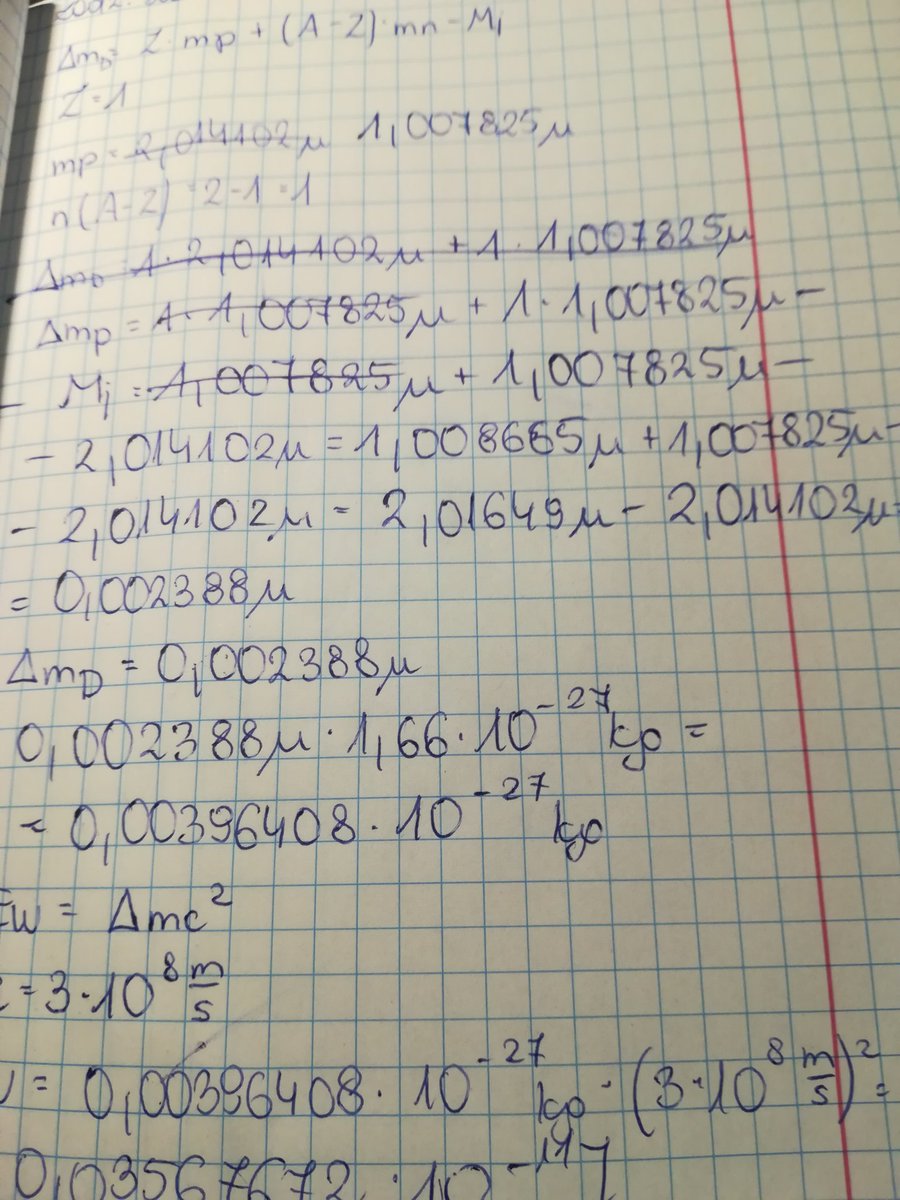 Δm_D = Z · mp + (A-Z) · mn - M_j
Z = 1
mp = 2,014102u 1,007825u
n(A-Z) = 2-1 = 1
Δm_D = 1 · 2,014102u + 1 · 1,007825u
Δmp = 1 · 1,007825u + 1 · 1,007825u -
- M_j = 1,007825u + 1,007825u -
- 2,014102u = 1,008665u + 1,007825u -
- 2,014102u = 2,01649u - 2,014102u =
= 0,002388u
Δm_D = 0,002388u
0,002388u · 1,66 · 10^-27 kg =
= 0,00396408 · 10^-27 kg
Ew = Δmc²
c = 3 · 10^8 m/s
= 0,00396408 · 10^-27 kg · (3 · 10^8 m/s)² =
0,03567672 · 10^-11 J